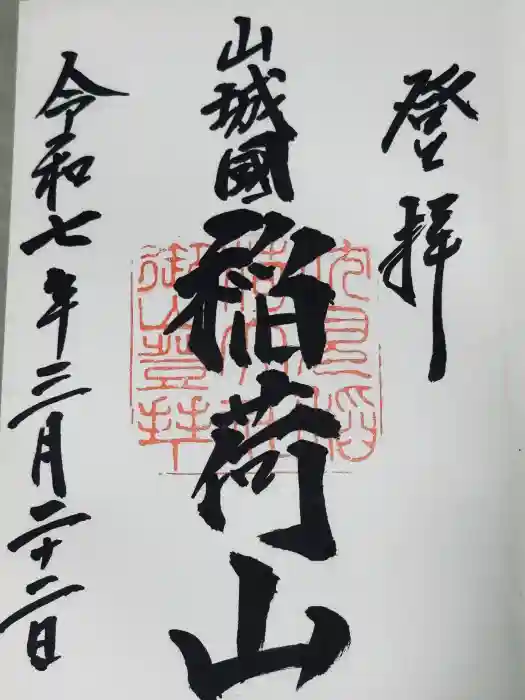 登拝
山城國
稲荷山
令和七年三月二十二日
御山登拝